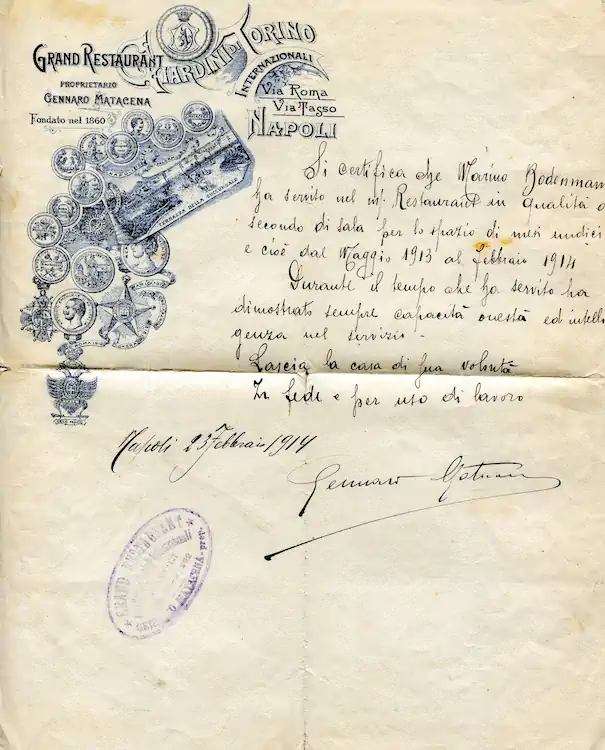 GRAND RESTAURANT
GIARDINI DI TORINO
INTERNAZIONALI
PROPRIETARIO
GENNARO MATACENA
Fondato nel 1860
Via Roma
Via Tasso
NAPOLI
TERRAZZA DELLA
Si certifica che Marino Bodenman
ha servito nel mio Restaurant in qualità di
secondo di sala per lo spazio di mesi undici
e cioè dal Maggio 1913 al Febbraio 1914
Durante il tempo che ha servito ha
dimostrato sempre capacità onestà ed intelli
genza nel servizio -
Lascia la casa di sua volontà
In fede e per uso di lavoro
Napoli 23 Febbraio 1914
Gennaro Matacena
GRAND RESTAURANT